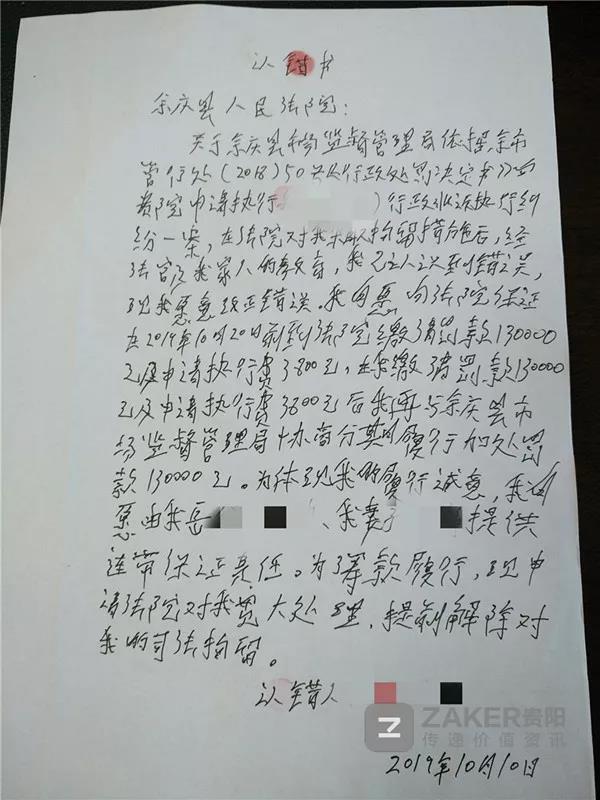 认错书
余庆县人民法院:
关于余庆县市场监督管理局依据余市
管行处(2018)50号《行政处罚决定书》向
贵院申请执行 )行政非诉执行纠
纷一案,在法院对我采取拘留措施后,经
法官及我家人的教育,我已经认识到错误,
现我愿意改正错误。我自愿向法院保证
在2019年10月20日前到法院缴清罚款130000
元及申请执行费3800元,在我缴清罚款130000
元及申请执行费3800元后我再与余庆县市
场监督管理局协商分期履行加处罚
款130000元。为体现我的履行诚意,我自
愿由我岳 、我妻 提供
连带保证责任。为筹款履行,现申
请法院对我宽大处理,提前解除对
我的司法拘留。
认错人
2019年10月10日
ZAKER贵阳
传递价值资讯